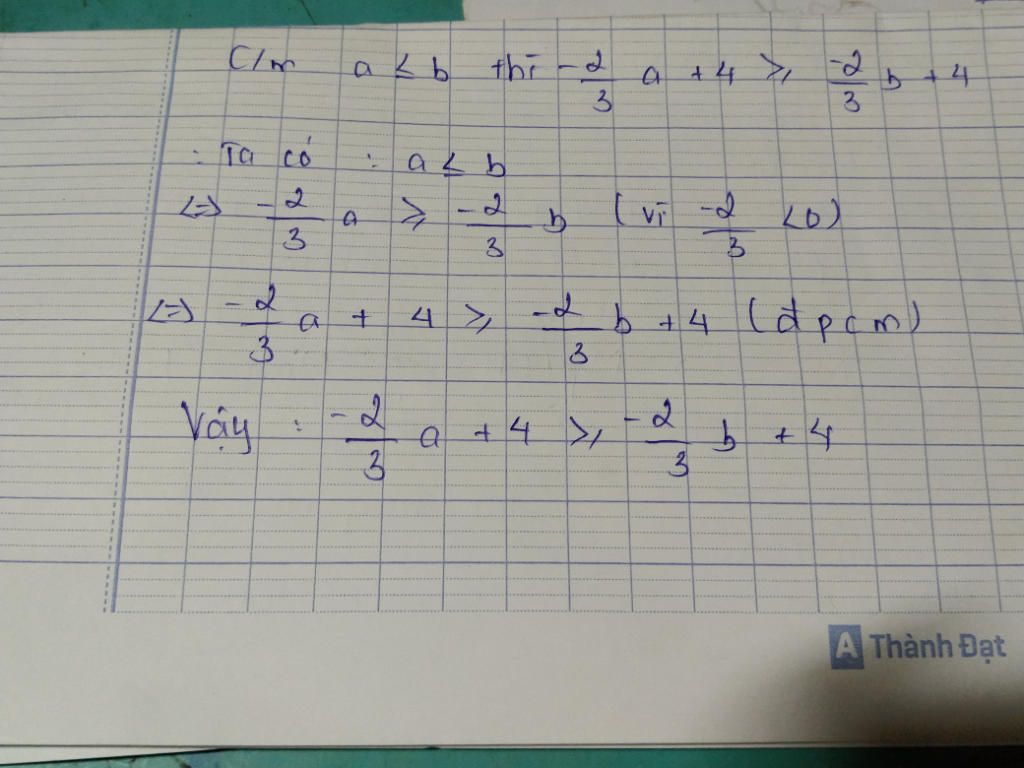 C/m a ≤ b thì -2/3 a + 4 ≥ -2/3 b + 4
: Ta có : a ≤ b
<=> -2/3 a ≥ -2/3 b (vì -2/3 <0)
<=> -2/3 a + 4 ≥ -2/3 b + 4 (đpcm)
Vậy : -2/3 a + 4 ≥ -2/3 b + 4
A Thành Đạt